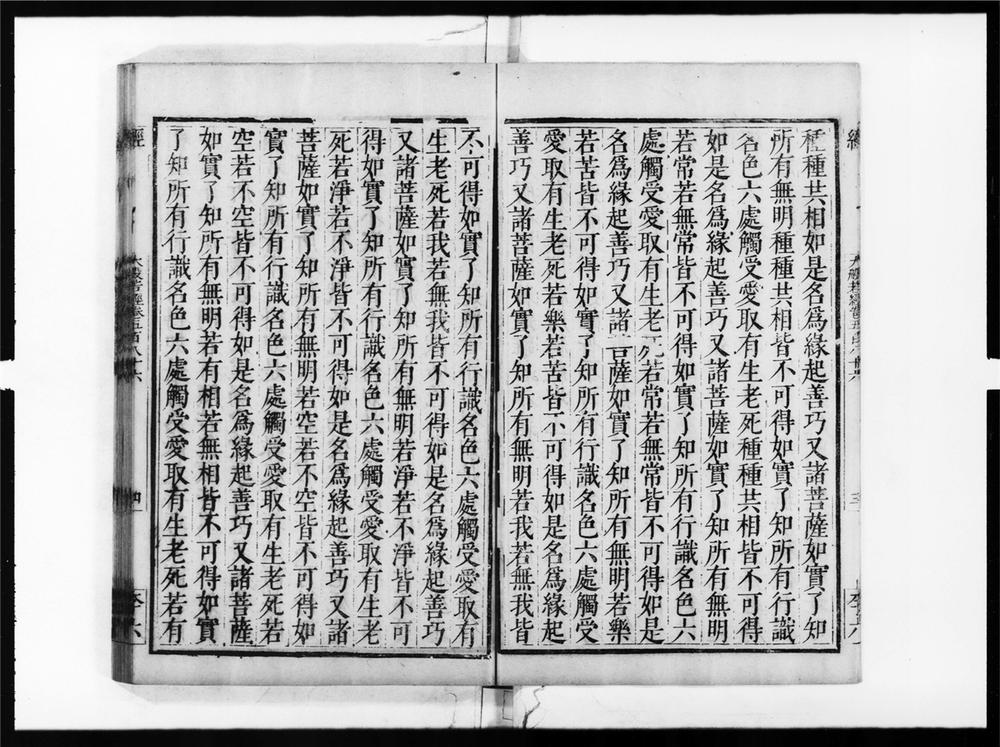 種種共相如是名爲緣起善巧又諸菩薩如實了知
所有無明種種共相皆不可得如實了知所有行識
名色六處觸受愛取有生老死種種共相皆不可得
如是名爲緣起善巧又諸菩薩如實了知所有無明
若常若無常皆不可得如實了知所有行識名色六
處觸受愛取有生老死若常若無常皆不可得如是
名爲緣起善巧又諸菩薩如實了知所有無明若樂
若苦皆不可得如實了知所有行識名色六處觸受
愛取有生老死若樂若苦皆不可得如是名爲緣起
善巧又諸菩薩如實了知所有無明若我若無我皆
不可得如實了知所有行識名色六處觸受愛取有
生老死若我若無我皆不可得如是名爲緣起善巧
又諸菩薩如實了知所有無明若淨若不淨皆不可
得如實了知所有行識名色六處觸受愛取有生老
死若淨若不淨皆不可得如是名爲緣起善巧又諸
菩薩如實了知所有無明若空若不空皆不可得如
實了知所有行識名色六處觸受愛取有生老死若
空若不空皆不可得如是名爲緣起善巧又諸菩薩
如實了知所有無明若有相若無相皆不可得如實
了知所有行識名色六處觸受愛取有生老死若有
經 大般若經卷五百八十六 四